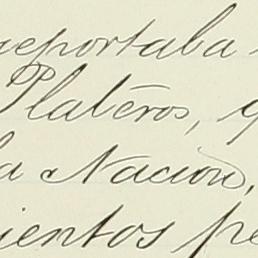 reportaba
Plateros, q
la Nacion,
ientos pe